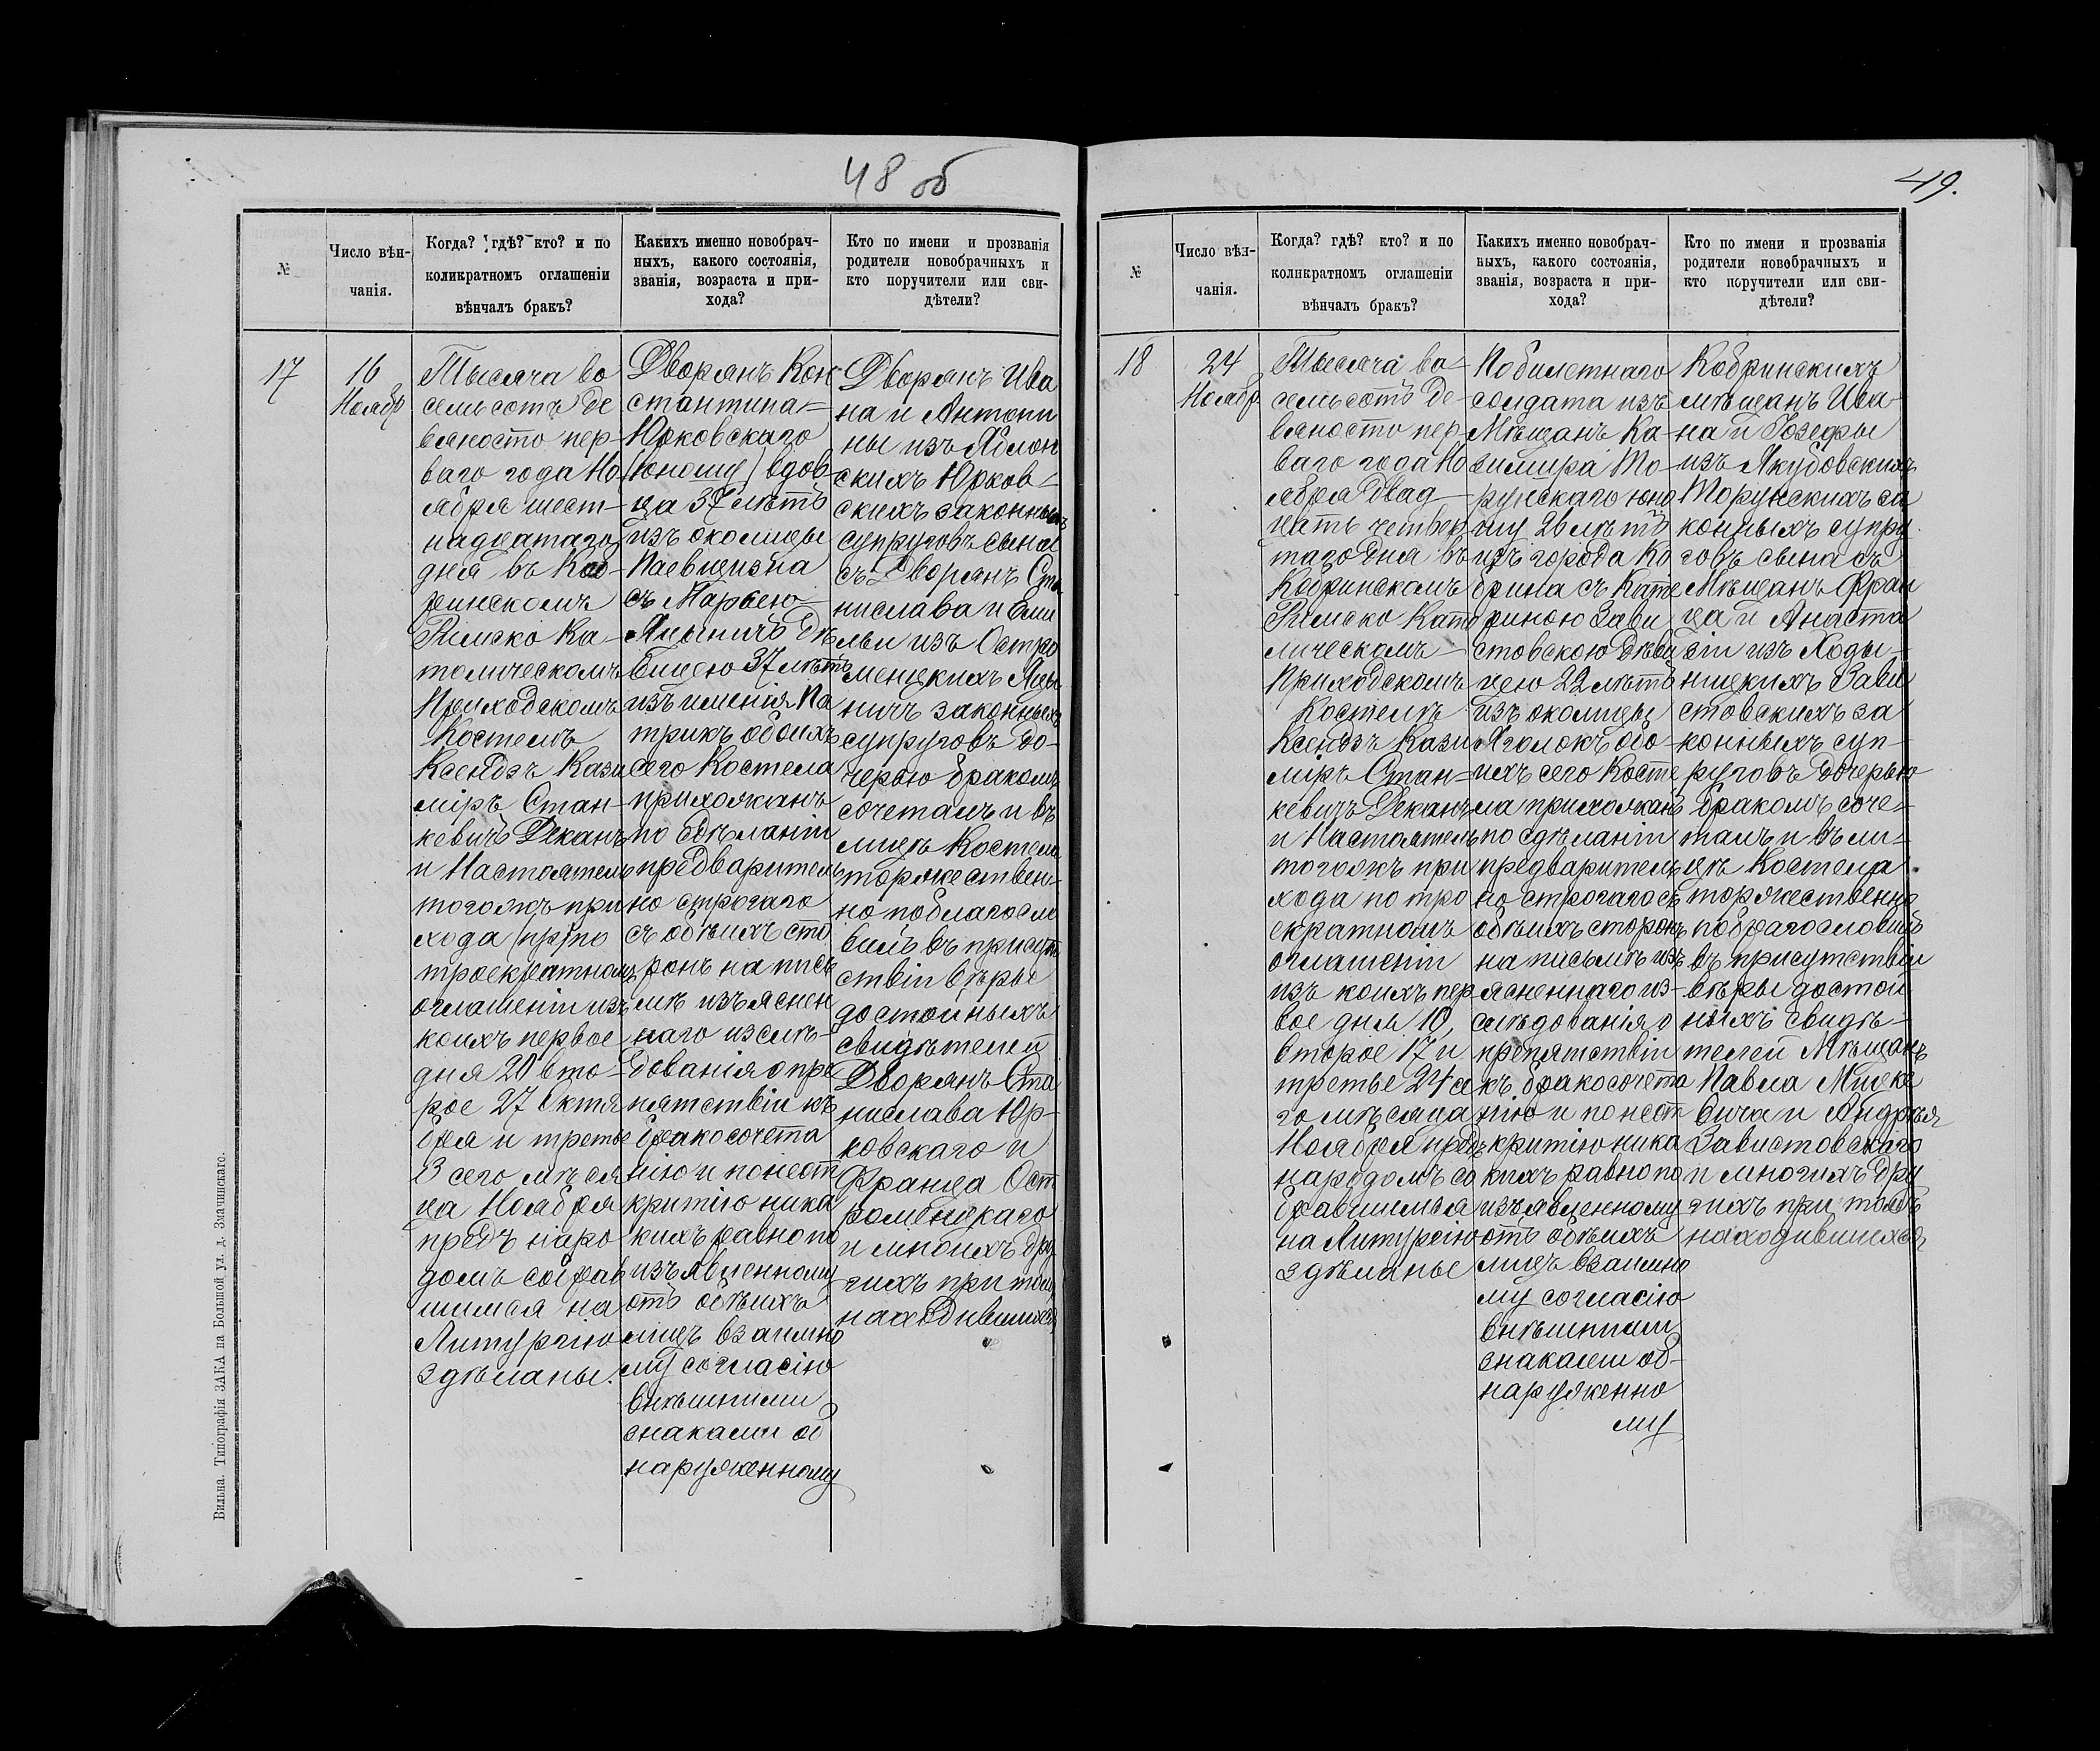 48 об
№
Число вѣн-
чанія.
Когда? гдѣ? кто? и по
коликратномъ оглашеніи
вѣнчалъ бракъ?
Какихъ именно новобрач-
ныхъ, какого состоянія,
званія, возраста и при-
хода?
Кто по имени и прозванія
родители новобрачныхъ и
кто поручители или сви-
дѣтели?
17
16
Ноябр
Тысяча во
семьсотъ де
вяносто пер-
ваго года Но-
ября шест-
надцатаго
дня въ Коб-
ринскомъ
Римско Ка-
толическомъ
Приходскомъ
Костелѣ
Ксендзъ Кази
міръ Стан-
кевичъ Деканъ
и Настоятель
тогожъ при
хода (пр) по
троекратномъ
оглашеніи изъ
коихъ первое
дня 20 вто-
рое 27 Октя
бря и третье
3 сего мѣся
ца Ноября
предъ наро
домъ собрав
шимся на
Литургію
здѣланы.
Дворянъ Кон
стантина
Юрковскаго
(юношу) вдов-
ца 37 лѣтъ
изъ околицы
Паевщизна
съ Марьею
Яныничъ дѣ
вицею 37 лѣтъ
изъ имѣнія Па
трикъ обоихъ
сего Костела
прихожанъ
по сдѣланіи
предваритель
но строгаго
съ обѣихъ сто
ронъ на пись
мѣ изъяснен
наго изслѣ-
дованія о пре
пятствіи къ
бракосочета
нію и понеот
крытію ника
кихъ равно по
изъявленному
отъ обѣихъ
лицъ взаимно
му согласію
внѣшними
знаками об
наруженному
Дворянъ Ива
на и Антони
ны изъ Яблон
скихъ Юрков-
скихъ законныхъ
супруговъ сына
съ Дворянъ Ста
нислава и Эми
льи изъ Остро
менцкихъ Яны
ничъ законныхъ
супруговъ до-
черью бракомъ
сочеталъ и въ
лицѣ Костела
торжествен-
но поблагосло
вилъ въ присут
ствіи вѣры
достойныхъ
свидѣтелей
Дворянъ Ста
нислава Юр-
ковскаго и
Франца Ост
роменцкаго
и многихъ дру
гихъ при томъ
находившихся
Вильна. Типографія ЗАКА на Большой ул. д. Значинскаго.
49.
№
Число вѣн-
чанія.
Когда? гдѣ? кто? и по
коликратномъ оглашеніи
вѣнчалъ бракъ?
Какихъ именно новобрач-
ныхъ, какого состоянія,
званія, возраста и при-
хода?
Кто по имени и прозванія
родители новобрачныхъ и
кто поручители или сви-
дѣтели?
18
24
Ноябр
Тысяча во-
семьсотъ де-
вяносто пер
ваго года Но
ября двад-
цать четвер
таго дня въ
Кобринскомъ
Римско Като
лическомъ
Приходскомъ
Костелѣ
Ксендзъ Кази
міръ Стан-
кевичъ Деканъ
и Настоятель
тогожъ при
хода по тро
екратномъ
оглашеніи
изъ коихъ пер
вое дня 10,
второе 17 и
третье 24 се
го мѣсяца
Ноября предъ
народомъ со
бравшимъся
на Литургію
здѣланые
Побилетнаго
солдата изъ
Мѣщанъ Ка-
зимира То-
рунскаго юно
шу 26 лѣтъ
изъ города Ко
брина съ Кате
риною Зави
стовскою дѣви
цею 22 лѣтъ
изъ околицы
Яголокъ обо-
ихъ сего Косте
ла прихожанъ
по сдѣланіи
предваритель
но строгаго съ
обѣихъ сторонъ
на письмѣ изъ
ясненнаго из-
слѣдованія о
препятствіи
къ бракосочета
нію и понеот
крытію ника
кихъ равно по
изъявленному
отъ обѣихъ
лицъ взаимно
му согласію
внѣшними
знаками об-
наруженно
му
Кобринскихъ
мѣщанъ Ива-
на и Іозефы
изъ Якубовскихъ
Торунскихъ за
конныхъ супру
говъ сына съ
Мѣщанъ Фран
ца и Анаста
зіи изъ Ходы-
ницкихъ Зави
стовскихъ за
конныхъ суп-
руговъ дочерью
бракомъ соче-
талъ и въ ли-
цѣ Костела
торжественно
поблагословилъ
въ присутствіи
вѣры достой
ныхъ свидѣ-
телей Мѣщанъ
Павла Мицке
вича и Андрея
Завистовскаго
и многихъ дру
гихъ при томъ
находившихся